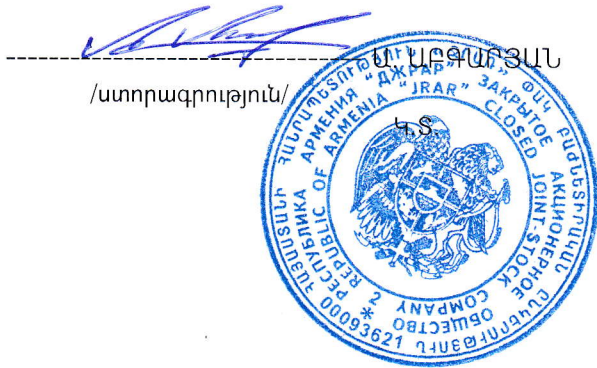 Ա. ԱԲԳԱՐՅԱՆ
/ստորագրություն/
Կ.Տ.
ՀԱՅԱՍՏԱՆԻ ՀԱՆՐԱՊԵՏՈՒԹՅՈՒՆ ՓԱԿ ԲԱԺՆԵՏԻՐԱԿԱՆ ԸՆԿԵՐՈՒԹՅՈՒՆ 00093621
РЕСПУБЛИКА АРМЕНИЯ "ДЖРАР" ЗАКРЫТОЕ АКЦИОНЕРНОЕ ОБЩЕСТВО *
REPUBLIC OF ARMENIA "JRAR" CLOSED JOINT-STOCK COMPANY 2